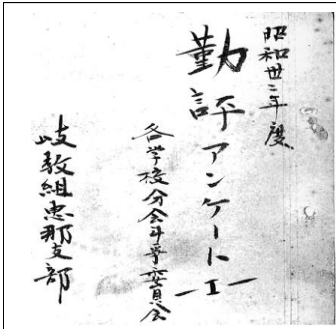 昭和卅二年度
勤評アンケート
—I—
各学校分会斗争委員会
岐教組恵那支部